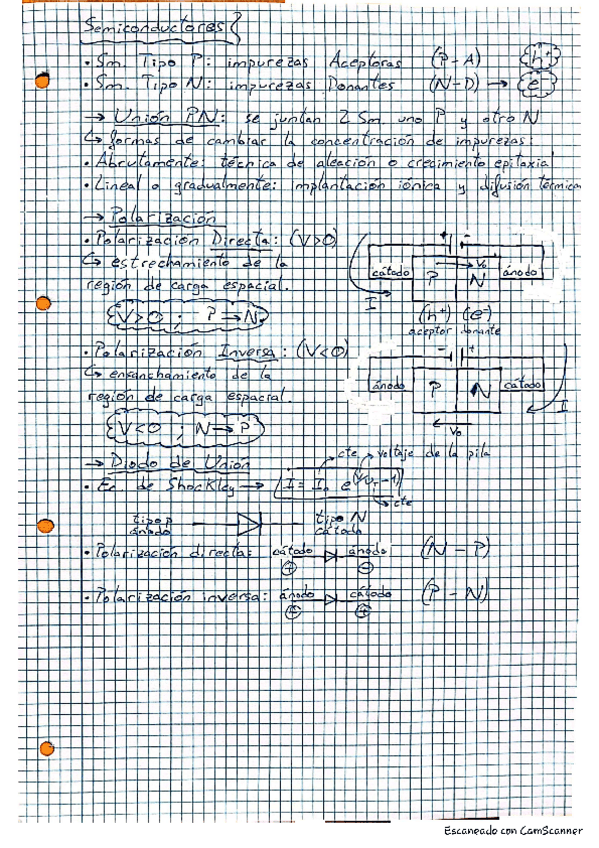 Semiconductores
• Sm. Tipo P: impurezas Aceptoras (P-A) h⁺
• Sm. Tipo N: impurezas Donantes (N-D) → e⁻
→ Unión PN: se juntan 2 Sm. uno P y otro N
↳ formas de cambiar la concentración de impurezas:
• Abrutamente: técnica de aleación o crecimiento epitaxia
• Lineal o gradualmente: implantación iónica y difusión térmica
→ Polarización
• Polarización Directa: (V>0)
↳ estrechamiento de la
región de carga espacial.
V>0 ; P → N
+ -
cátodo P N ánodo
V₀
I
(h⁺) (e⁻)
aceptor donante
• Polarización Inversa: (V<0)
↳ ensanchamiento de la
región de carga espacial.
V<0 ; N → P
- +
ánodo P N cátodo
V₀
I
→ Diodo de Unión
cte voltaje de la pila
• Ec. de Shockley → I = I₀ e^(V/V_T - 1)
cte
tipo p tipo N
ánodo cátodo
• Polarización directa: cátodo ánodo (N - P)
+ -
• Polarización inversa: ánodo cátodo (P - N)
Escaneado con CamScanner